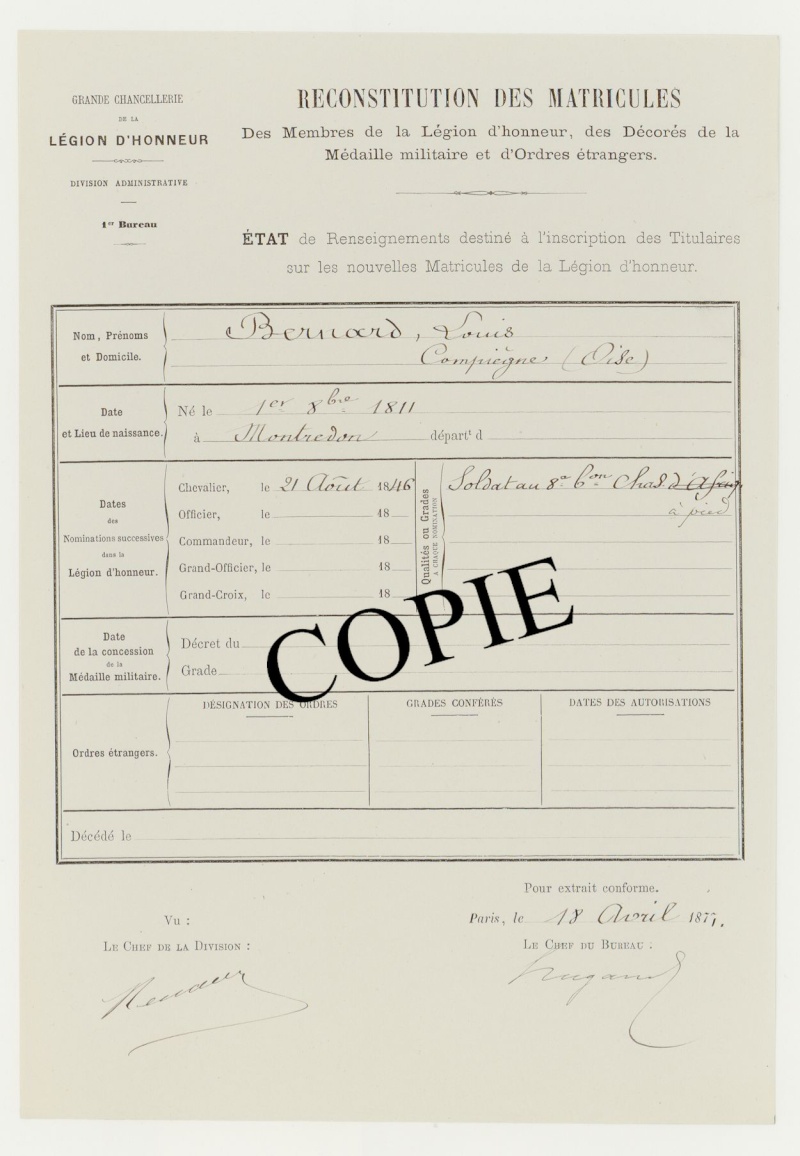 GRANDE CHANCELLERIE
DE LA
LÉGION D'HONNEUR
DIVISION ADMINISTRATIVE
1er Bureau
RECONSTITUTION DES MATRICULES
Des Membres de la Légion d'honneur, des Décorés de la
Médaille militaire et d'Ordres étrangers.
ÉTAT de Renseignements destiné à l'inscription des Titulaires
sur les nouvelles Matricules de la Légion d'honneur.
Nom, Prénoms
et Domicile.
Bernard, Louis
Compiègne (Oise)
Date
et Lieu de naissance.
Né le 1er 8bre 1811
à Montredon départt d
Dates
des
Nominations successives
dans la
Légion d'honneur.
Chevalier, le 21 Août 1846
Officier, le 18
Commandeur, le 18
Grand-Officier, le 18
Grand-Croix, le 18
Qualités ou Grades
A CHAQUE NOMINATION
Soldat au 8e bon Chas. d'Afriq.
à pied
Date
de la concession
de la
Médaille militaire.
Décret du
Grade
COPIE
Ordres étrangers.
DÉSIGNATION DES ORDRES
GRADES CONFÉRÉS
DATES DES AUTORISATIONS
Décédé le
Pour extrait conforme.
Paris, le 18 Avril 1877.
Vu :
LE CHEF DE LA DIVISION :
LE CHEF DU BUREAU :